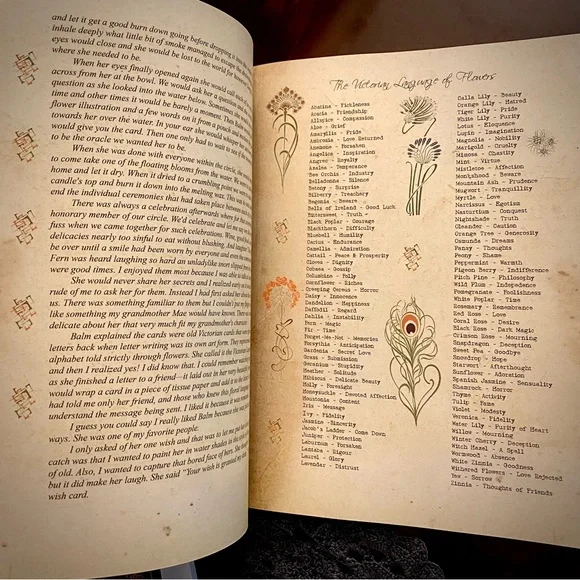 and let it get a good burn down going before dropping it
inhale deeply what little bit of smoke managed to escape the
eyes would close and she would be lost to the world for
where she needed to be.
When her eyes finally opened again she would call
across from her at the bowl. We would ask her a question
question as she looked into the water below.
time and other times it would be barely a moment. Then
flower illustration and a few words on it from a pouch
towards her over the water. In your ear she would whisper
would give you the card. Then one only had to wait
to be the oracle we wanted her to be.
When she was done with everyone within the circle,
to come take one of the floating blooms from the water,
home and let it dry. When it dried to a crumbling point we
candle's top and burn it down into the melting wax. This
end the individual ceremonies that had taken place between
There was always a celebration afterwards where
honorary member of our circle. We'd celebrate and
fuss when we came together for such celebrations. What
delicacies nearly too sinful to eat without blushing. And
be over until a smile had been worn by everyone and even
Fern was heard laughing so hard an unladylike snort slipped
were good times. I enjoyed them most because I was able
She would never share her secrets and I realized early
rude of me to ask her for them. Instead I had first asked her
us. There was something familiar to them but I couldn't
like something my grandmother Mae would have known. There
delicate about her that very much fit my grandmother's character.
Balm explained the cards were old Victorian cards
letters back when letter writing was its own art form. They
alphabet told strictly through flowers. She called it the Victorian
and then I realized yes! I did know that. I could remember
as she finished a letter to a friend—it laid out in her very
would wrap a card in a piece of tissue paper and add it to the
had told me only her friend, and those who knew this floral
understand the message being sent. I liked it because it
I guess you could say I really liked Balm because she
ways. She was one of my favorite people.
I only asked of her one wish and that was to let me paint
catch was that I wanted to paint her in water shades in the
of old. Also, I wanted to capture that bored face of hers.
but it did make her laugh. She said "Your wish is granted
wish card.
The Victorian Language of Flowers
Abatina - Fickleness
Acacia - Friendship
Allspice - Compassion
Aloe - Grief
Amaryllis - Pride
Ambrosia - Love Returned
Anemone - Forsaken
Angelica - Inspiration
Angrec - Royalty
Azalea - Temperance
Bee Orchis - Industry
Belladonna - Silence
Betony - Surprise
Bilberry - Treachery
Begonia - Beware
Bells of Ireland - Good Luck
Bittersweet - Truth
Black Poplar - Courage
Blackthorn - Difficulty
Bluebell - Humility
Cactus - Endurance
Camellia - Admiration
Cattail - Peace & Prosperity
Clover - Dignity
Cobaea - Gossip
Columbine - Folly
Cornflower - Riches
Creeping Cereus - Horror
Daisy - Innocence
Dandelion - Happiness
Daffodil - Regard
Dahlia - Instability
Fern - Magic
Fir - Time
Forget-Me-Not - Memories
Forsythia - Anticipation
Gardenia - Secret Love
Grass - Submission
Geranium - Stupidity
Heather - Solitude
Hibiscus - Delicate Beauty
Holly - Foresight
Honeysuckle - Devoted Affection
Houstonia - Content
Iris - Message
Ivy - Fidelity
Jasmine - Sincerity
Jacob's Ladder - Come Down
Juniper - Protection
Laburnum - Forsaken
Lantana - Rigour
Laurel - Glory
Lavender - Distrust
Calla Lily - Beauty
Orange Lily - Hatred
Tiger Lily - Pride
White Lily - Purity
Lotus - Eloquence
Lupin - Imagination
Magnolia - Nobility
Marigold - Cruelty
Mimosa - Chastity
Mint - Virtue
Mistletoe - Affection
Monkshood - Beware
Mountain Ash - Prudence
Mugwort - Tranquillity
Myrtle - Love
Narcissus - Egotism
Nasturtium - Conquest
Nightshade - Truth
Oleander - Caution
Orange Tree - Generosity
Osmunda - Dreams
Pansy - Thoughts
Peony - Shame
Peppermint - Warmth
Pigeon Berry - Indifference
Pitch Pine - Philosophy
Wild Plum - Independence
Pomegranate - Foolishness
White Poplar - Time
Rosemary - Remembrance
Red Rose - Love
Coral Rose - Desire
Black Rose - Dark Magic
Crimson Rose - Mourning
Snapdragon - Deception
Sweet Pea - Goodbye
Snowdrop - Hope
Starwort - Afterthought
Sunflower - Adoration
Spanish Jasmine - Sensuality
Shamrock - Horror
Thyme - Activity
Tulip - Fame
Violet - Modesty
Veronica - Fidelity
Water Lily - Purity of Heart
Willow - Mourning
Winter Cherry - Deception
Witch Hazel - A Spell
Wormwood - Absence
White Zinnia - Goodness
Withered Flowers - Love Rejected
Yew - Sorrow
Zinnia - Thoughts of Friends